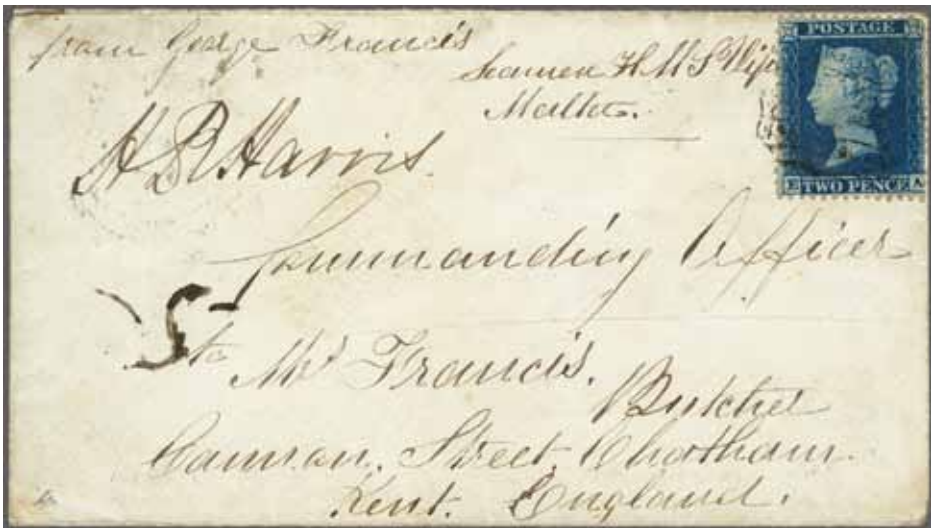 from George Francis
Seamen H.M.S
Malta.
POSTAGE
H B Harris.
E TWO PENCE A
Commanding Officer
5
to
Mr Francis.
Butcher
Cannon. Street. Chatham.
Kent. England.